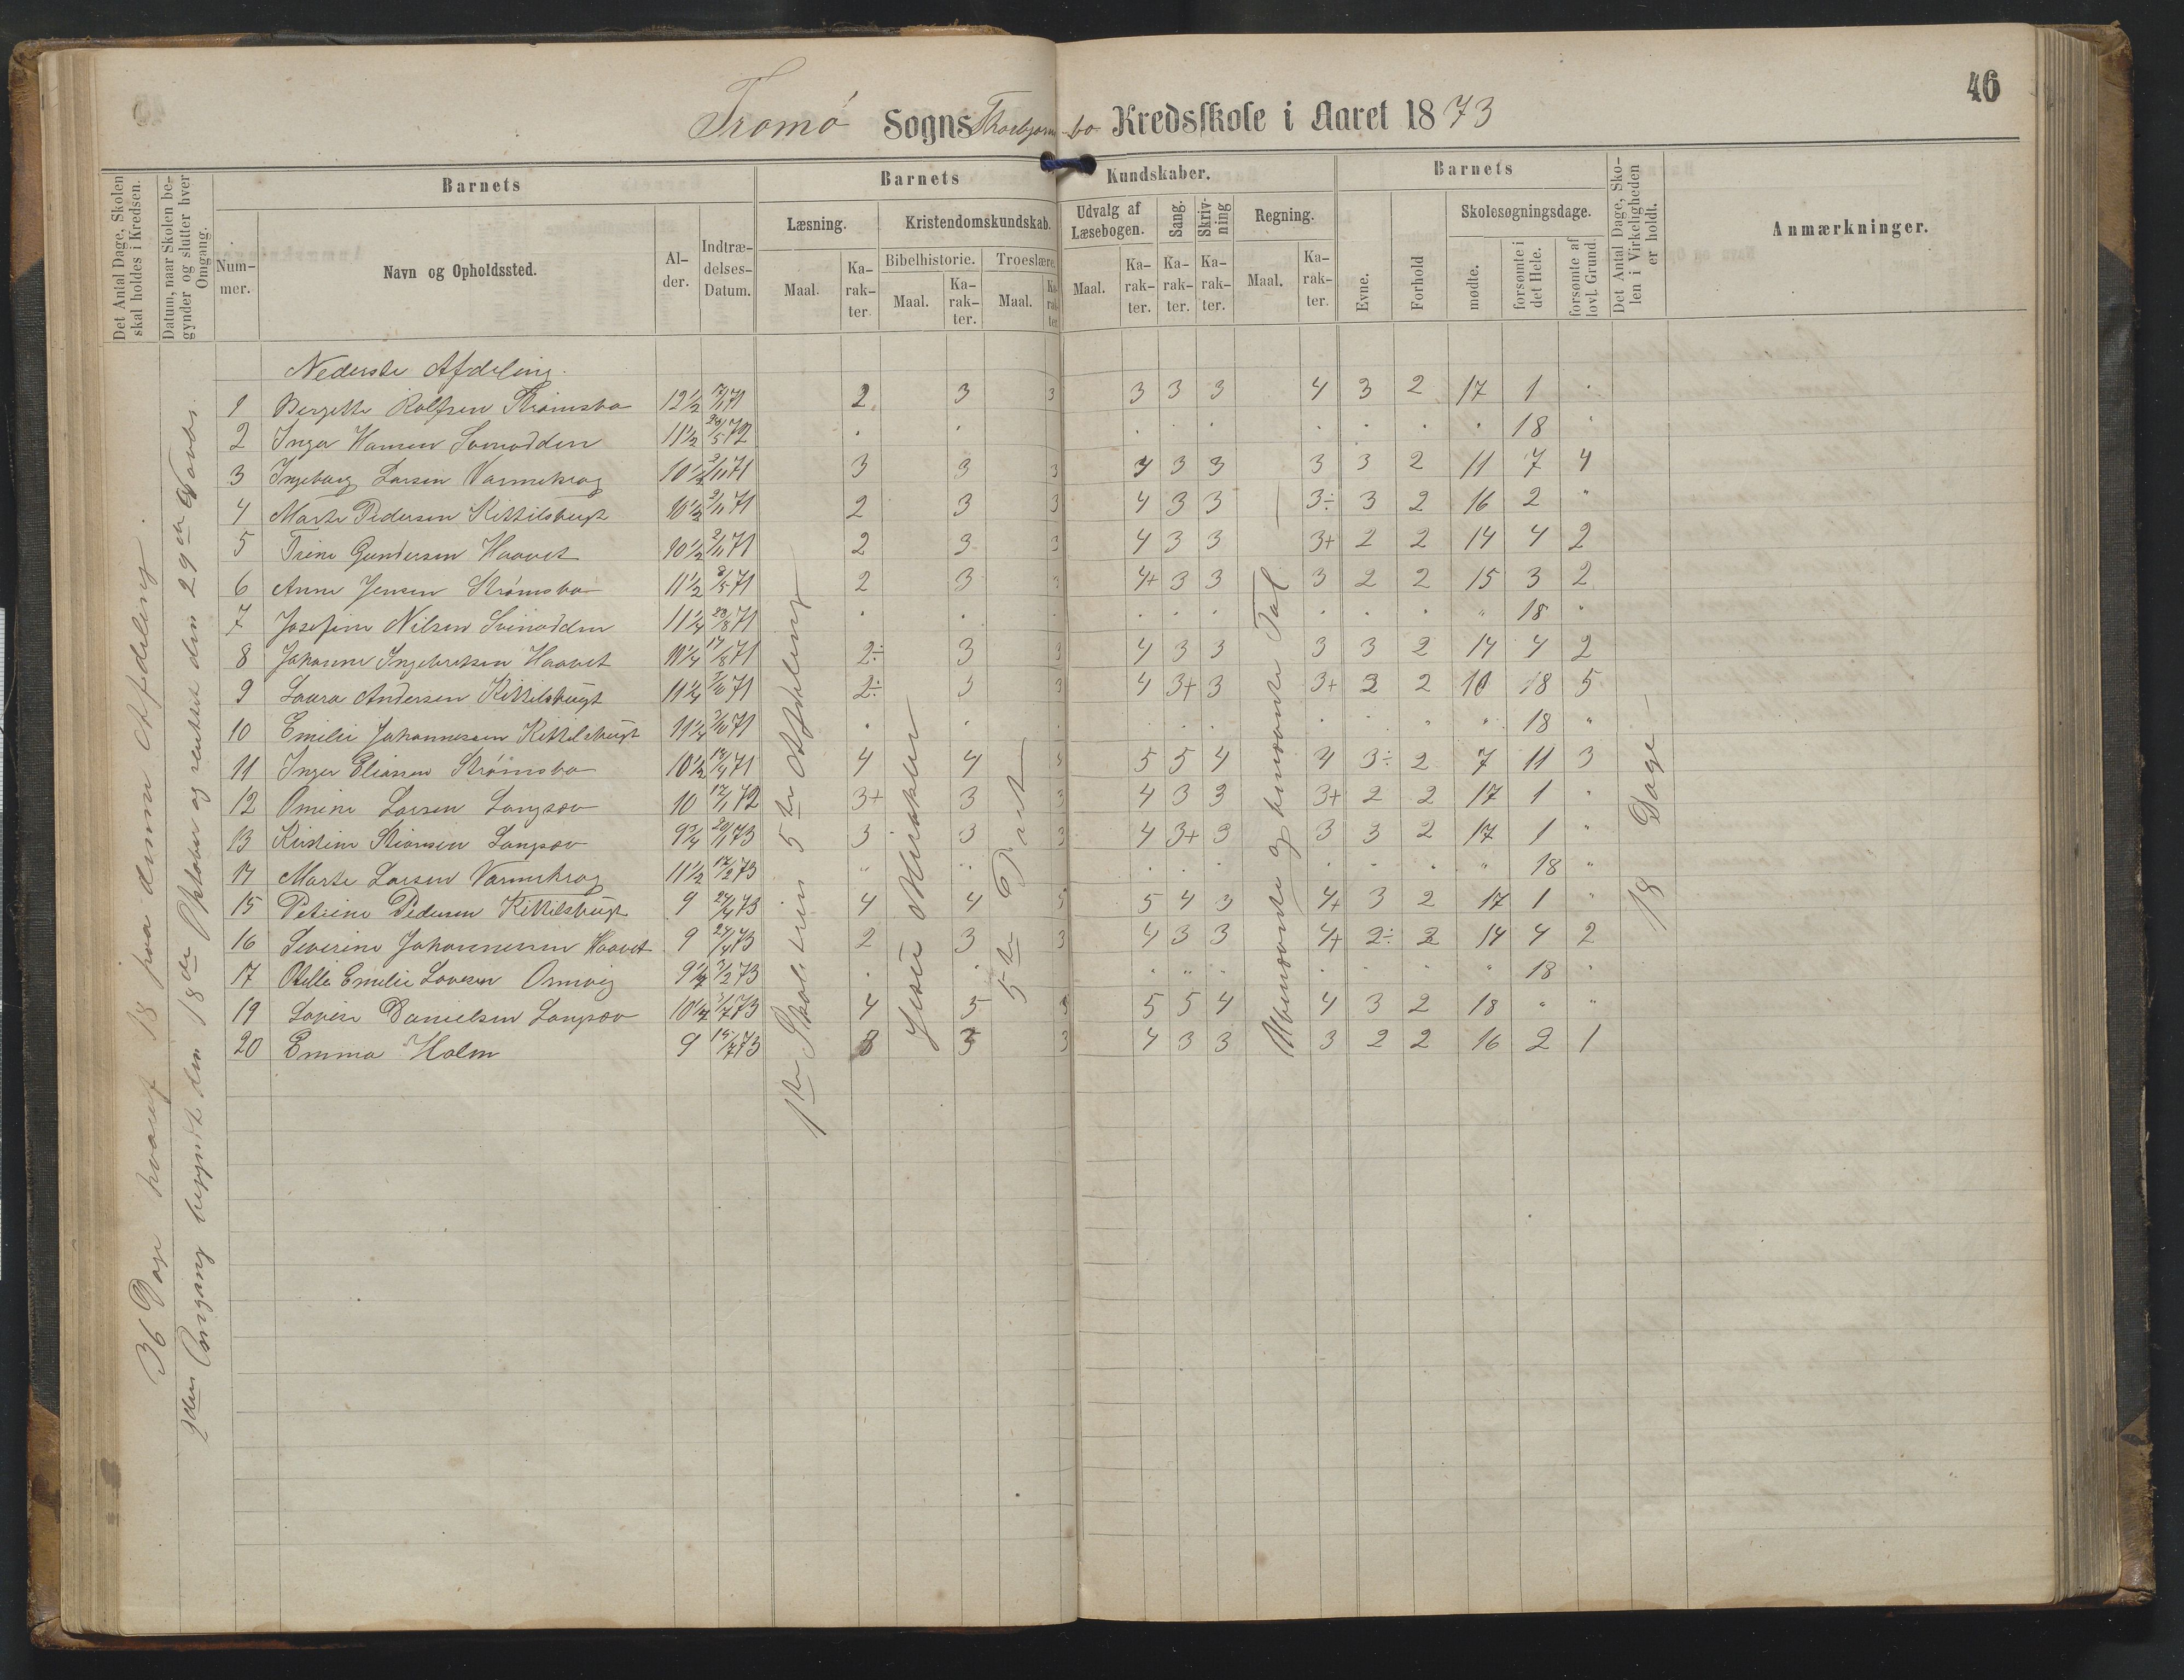 46
Tromø Sogns Thorbjørnsbo Kredsskole i Aaret 1873
Det Antal Dage, Skolen skal holdes i Kredsen.
Datum, naar Skolen begynder og slutter hver Omgang.
Barnets
Nummer.
Navn og Opholdssted.
Alder.
Indtrædelses-Datum.
Barnets Kundskaber.
Læsning.
Maal.
Karakter.
Kristendomskundskab.
Bibelhistorie.
Maal.
Karakter.
Troeslære.
Maal.
Karakter.
Udvalg af Læsebogen.
Maal.
Karakter.
Sang.
Karakter.
Skrivning
Karakter.
Regning.
Maal.
Karakter.
Barnets
Evne.
Forhold
Skolesøgningsdage.
mødte.
forsømte i det Hele.
forsømte af lovl. Grund.
Det Antal Dage, Skolen i Virkeligheden er holdt.
Anmærkninger.
36 Dage hvoraf 18 paa denne Afdeling.
2den Omgang begyndt den 18de Oktober og sluttet den 29de Novbr.
1ste Skoletrin 5te Afdeling
Jesu Mirakler
5te Part
Ubenævnte og benævnte Tal
18 Dage
Nederste Afdeling.
1 Bergette Rolfsen Strømsbo 12½ 2 3 3 3 3 3 4 3 2 17 1 "
2 Inger Hansen Svinodden 11½ 18 "
3 Ingeborg Larsen Varmekrog 10½ 2/11 71 3 3 3 4 3 3 3 3 2 11 7 4
4 Marte Pedersen Kittilsbugt 10½ 2/11 71 2 3 3 4 3 3 3÷ 3 2 16 2 "
5 Trine Gundersen Haavet 10½ 2/11 71 2 3 3 4 3 3 3+ 2 2 14 4 2
6 Anne Jensen Strømsbo 11½ 2 3 3 4+ 3 3 3 2 2 15 3 2
7 Josefine Nilsen Svinodden 11¼ 23/8 71 " 18 "
8 Johanne Ingebretsen Haavet 11¼ 17/8 71 2÷ 3 3 4 3 3 3 3 2 14 4 2
9 Laura Andersen Kittilsbugt 11¼ 2÷ 3 3 4 3+ 3 3+ 2 2 10 18 5
10 Emilie Johannessen Kittilsbugt 11¼ " 18 "
11 Inger Eliassen Strømsbo 10½ 4 4 5 5 4 4 3÷ 2 7 11 3
12 Omine Larsen Langsæv 10 17/1 72 3+ 3 3 4 3 3 3+ 2 2 17 1 "
13 Kirstine Stiansen Langsæv 9¾ 3 3 3 4 3+ 3 3 3 2 17 1 "
14 Marte Larsen Varmekrog 11½ 17/2 73 " 18 "
15 Petrine Pedersen Kittilsbugt 9 4 4 5 4 3 4+ 3 2 17 1 "
16 Severine Johannessen Haavet 9 2 3 3 4 3 3 4+ 2÷ 2 14 4 2
17 Otelli Emelie Lovesen Omvig 9½ " 18 "
19 Lovise Danielsen Langsæv 4 5 5 5 4 4 3 2 18 " "
20 Emma Holm 9 3 3 3 4 3 3 3 2 2 16 2 1